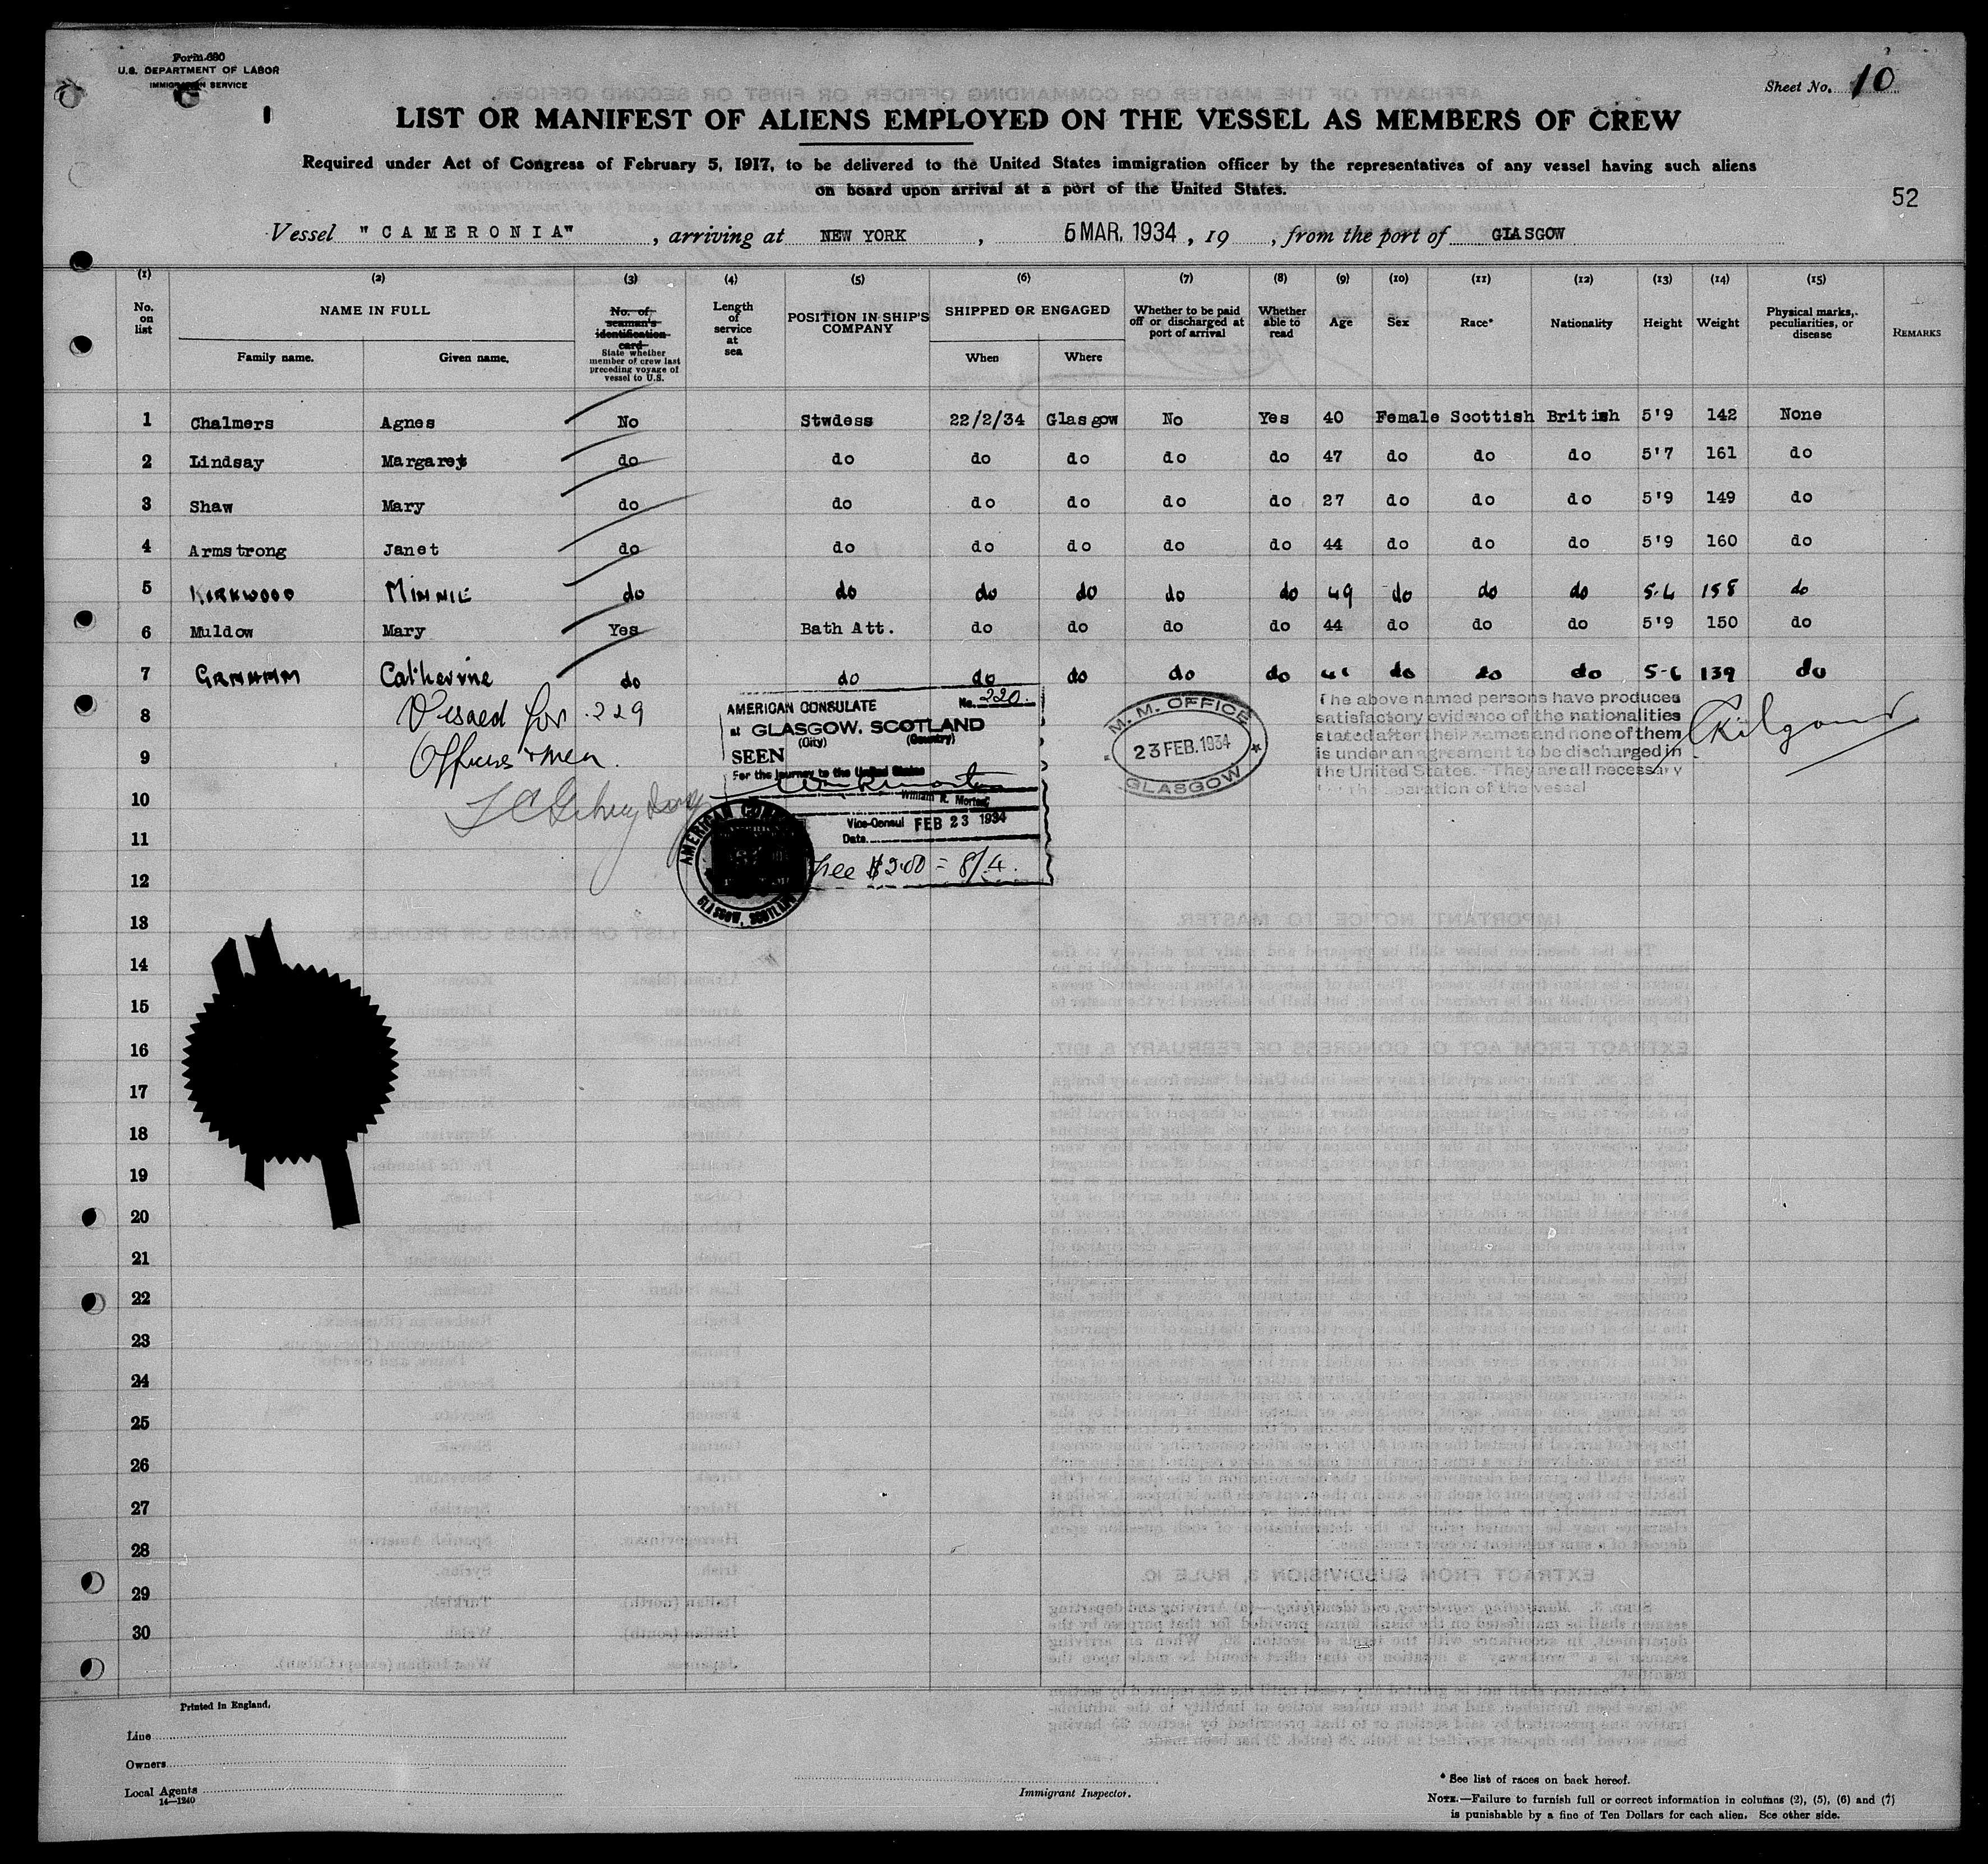 Form 680
U.S. DEPARTMENT OF LABOR
IMMIGRATION SERVICE
Sheet No. 10
LIST OR MANIFEST OF ALIENS EMPLOYED ON THE VESSEL AS MEMBERS OF CREW
Required under Act of Congress of February 5, 1917, to be delivered to the United States immigration officer by the representatives of any vessel having such aliens
on board upon arrival at a port of the United States.
52
Vessel "CAMERONIA", arriving at NEW YORK, 5 MAR. 1934, 19 , from the port of GLASGOW
(1) (2) (3) (4) (5) (6) (7) (8) (9) (10) (11) (12) (13) (14) (15)
No. on list
NAME IN FULL
Family name. Given name.
No. of seaman's identification card
State whether member of crew last preceding voyage of vessel to U.S.
Length of service at sea
POSITION IN SHIP'S COMPANY
SHIPPED OR ENGAGED
When Where
Whether to be paid off or discharged at port of arrival
Whether able to read
Age Sex Race* Nationality Height Weight
Physical marks, peculiarities, or disease
REMARKS
1 Chalmers Agnes No Stwdess 22/2/34 Glasgow No Yes 40 Female Scottish British 5'9 142 None
2 Lindsay Margaret do do do do do do 47 do do do 5'7 161 do
3 Shaw Mary do do do do do do 27 do do do 5'9 149 do
4 Armstrong Janet do do do do do do 44 do do do 5'9 160 do
5 KIRKWOOD MINNIE do do do do do do 49 do do do 5-6 158 do
6 Muldow Mary Yes Bath Att. do do do do 44 do do do 5'9 150 do
7 GRAHAM Catherine do do do do do do do do do 5-6 139 do
8 Visaed for 229
9 Officers & men.
10
11
12
13
14
15
16
17
18
19
20
21
22
23
24
25
26
27
28
29
30
AMERICAN CONSULATE No. 220.
at GLASGOW, SCOTLAND
(City) (Country)
SEEN
For the journey to the United States
William R. Morton
Vice-Consul FEB 23 1934
Date
Fee $2.00 = 8/4.
AMERICAN
GLASGOW, SCOTLAND
M. M. OFFICE
23 FEB. 1934
GLASGOW
The above named persons have produces
satisfactory evidence of the nationalities
stated after their names and none of them
is under an agreement to be discharged in
the United States. They are all necessary
for the operation of the vessel
Kilgour
Printed in England.
Line
Owners
Local Agents
14—1240
Immigrant Inspector.
* See list of races on back hereof.
NOTE.—Failure to furnish full or correct information in columns (2), (5), (6) and (7)
is punishable by a fine of Ten Dollars for each alien. See other side.